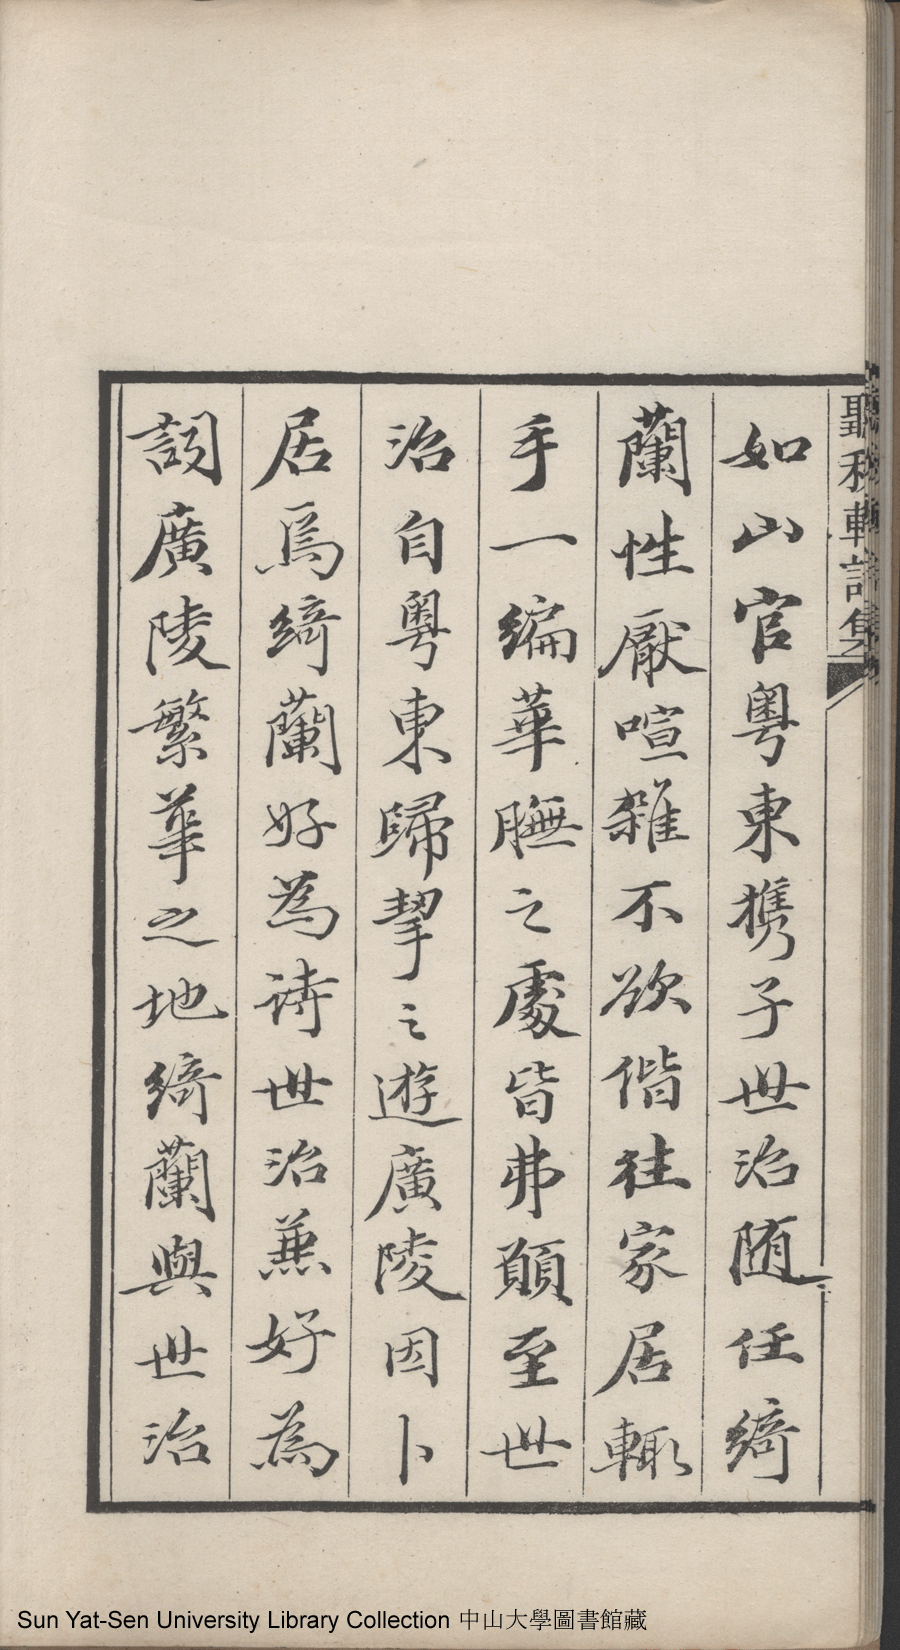 聽秋軒詩集
如山官粵東攜子世治随任綺
蘭性厭喧雜不欲偕往家居輙
手一編華膴之處皆弗顧至世
治自粵東歸挈之遊廣陵因卜
居焉綺蘭好為詩世治兼好為
詞廣陵繁華之地綺蘭與世治
Sun Yat-Sen University Library Collection 中山大學圖書館藏